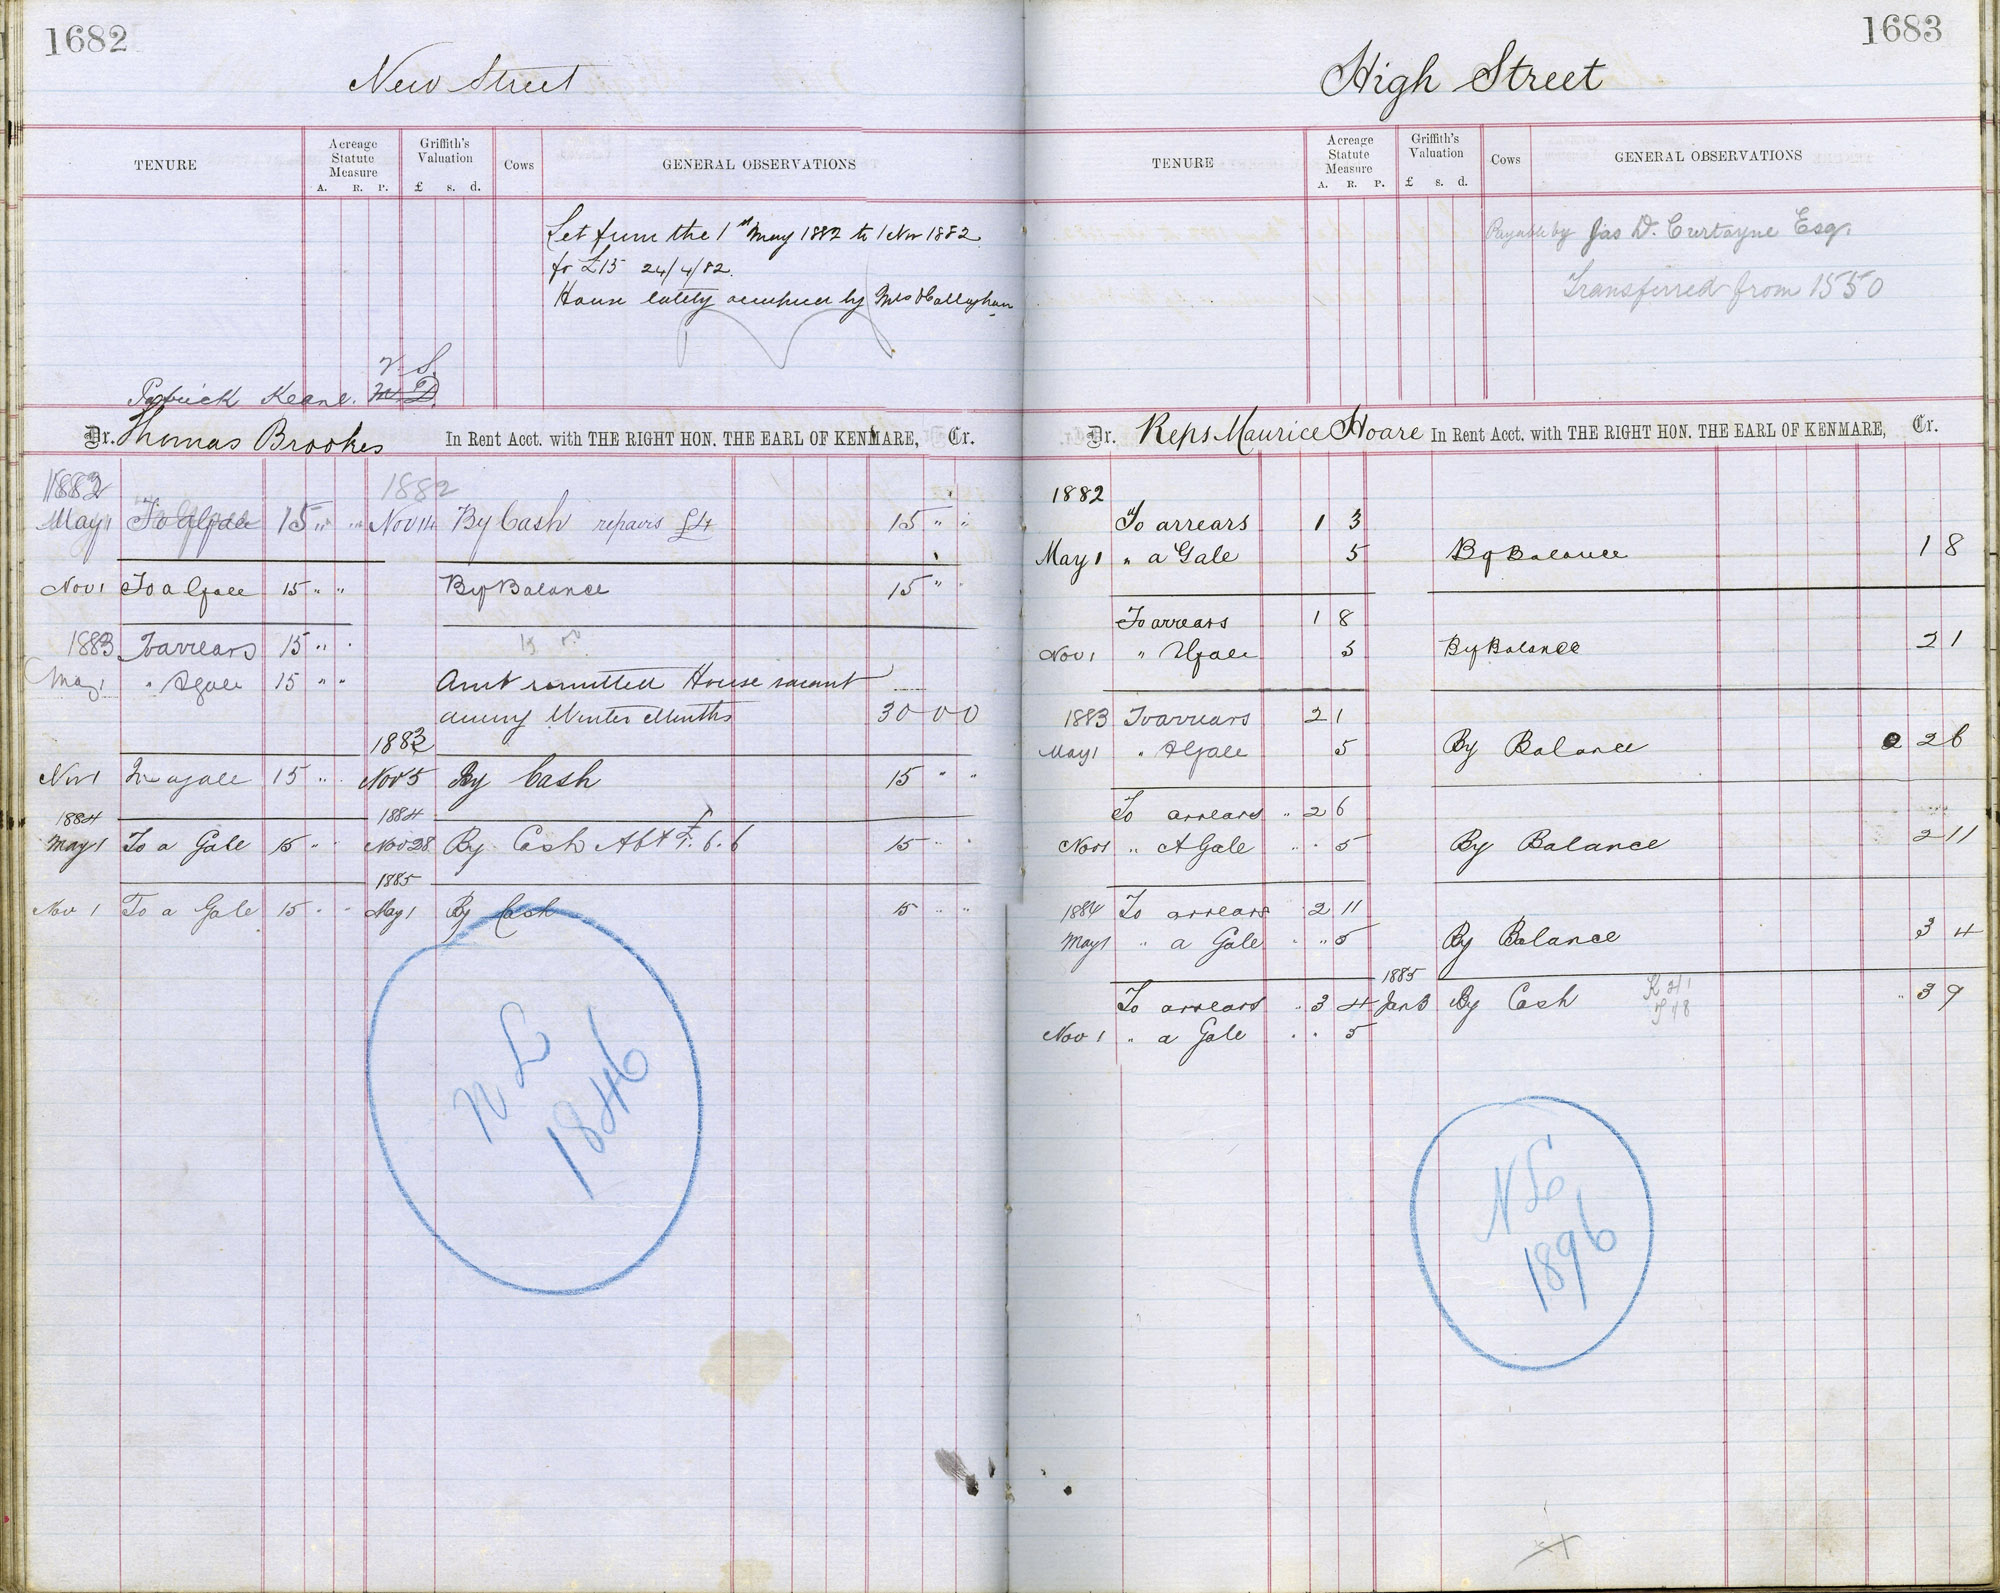 1682
New Street
TENURE
Acreage Statute Measure
A. R. P.
Griffith's Valuation
£ s. d.
Cows
GENERAL OBSERVATIONS
Let from the 1st May 1882 to 1 Nov 1882
for £15 24/4/82.
House lately occupied by Mrs O'Callaghan
V. S.
Patrick Keane. M. D.
Dr. Thomas Brookes In Rent Acct. with THE RIGHT HON. THE EARL OF KENMARE, Cr.
1882 1882
May 1 To a Gale 15 " " Nov 14 By Cash repairs £4 15 " "
Nov 1 To a Gale 15 " " By Balance 15 "
1883 To arrears 15 " "
May 1 " A Gale 15 " " Amt remitted House vacant
during Winter Months 30 0 0
1883
Nov 1 To a gale 15 " " Nov 5 By Cash 15 " "
1884 1884
May 1 To a Gale 15 " " Nov 28 By Cash Abt £. 6. 6 15 " "
1885
Nov 1 To a Gale 15 " " May 1 By Cash 15 " "
N L
1846
1683
High Street
TENURE
Acreage Statute Measure
A. R. P.
Griffith's Valuation
£ s. d.
Cows
GENERAL OBSERVATIONS
Payable by Jas D. Curtayne Esq.
Transferred from 1550
Dr. Reps Maurice Hoare In Rent Acct. with THE RIGHT HON. THE EARL OF KENMARE, Cr.
1882
To arrears 1 3
May 1 " a Gale 5 By Balance 1 8
To arrears 1 8
Nov 1 " A Gale 5 By Balance 2 1
1883 To arrears 2 1
May 1 " A Gale 5 By Balance 2 6
To arrears " 2 6
Nov 1 " A Gale " " 5 By Balance 2 11
1884 To arrears " 2 11
May 1 " a Gale " " 5 By Balance 3 4
1885
To arrears " 3 4 Jan 3 By Cash " 3 9
Nov 1 " a Gale " " 5
N L
1896